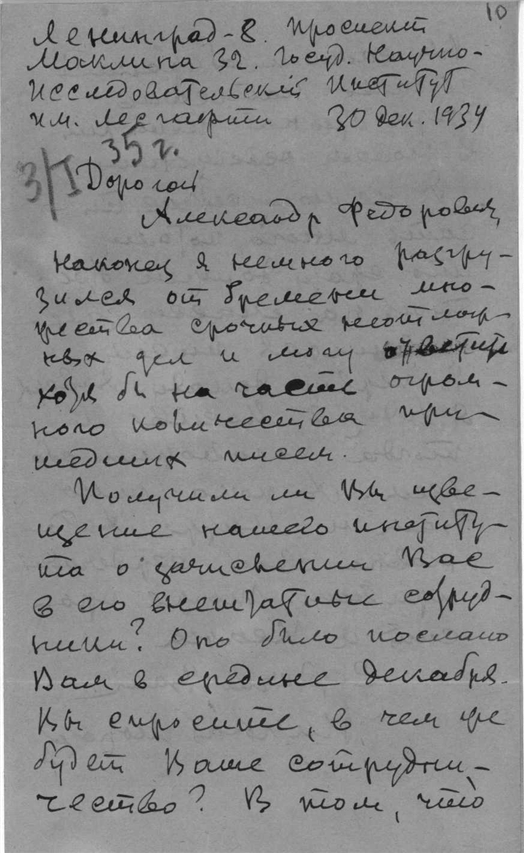 10
Ленинград-8. Проспект
Маклина 32. Госуд. Научно-
Исследовательский Институт
им. Лесгафта 30 дек. 1934
3/I 35 г.
Дорогой
Александр Федорович,
наконец я немного разгру-
зился от бремени мно-
жества срочных неотлож-
ных дел и могу ответить
хотя бы на часть огром-
ного количества при-
шедших писем.
Получили ли Вы изве-
щение нашего институ-
та о зачислении Вас
в его внештатные сотруд-
ники? Оно было послано
Вам в средине декабря.
Вы спросите, в чем же
будет Ваше сотрудни-
чество? В том, что